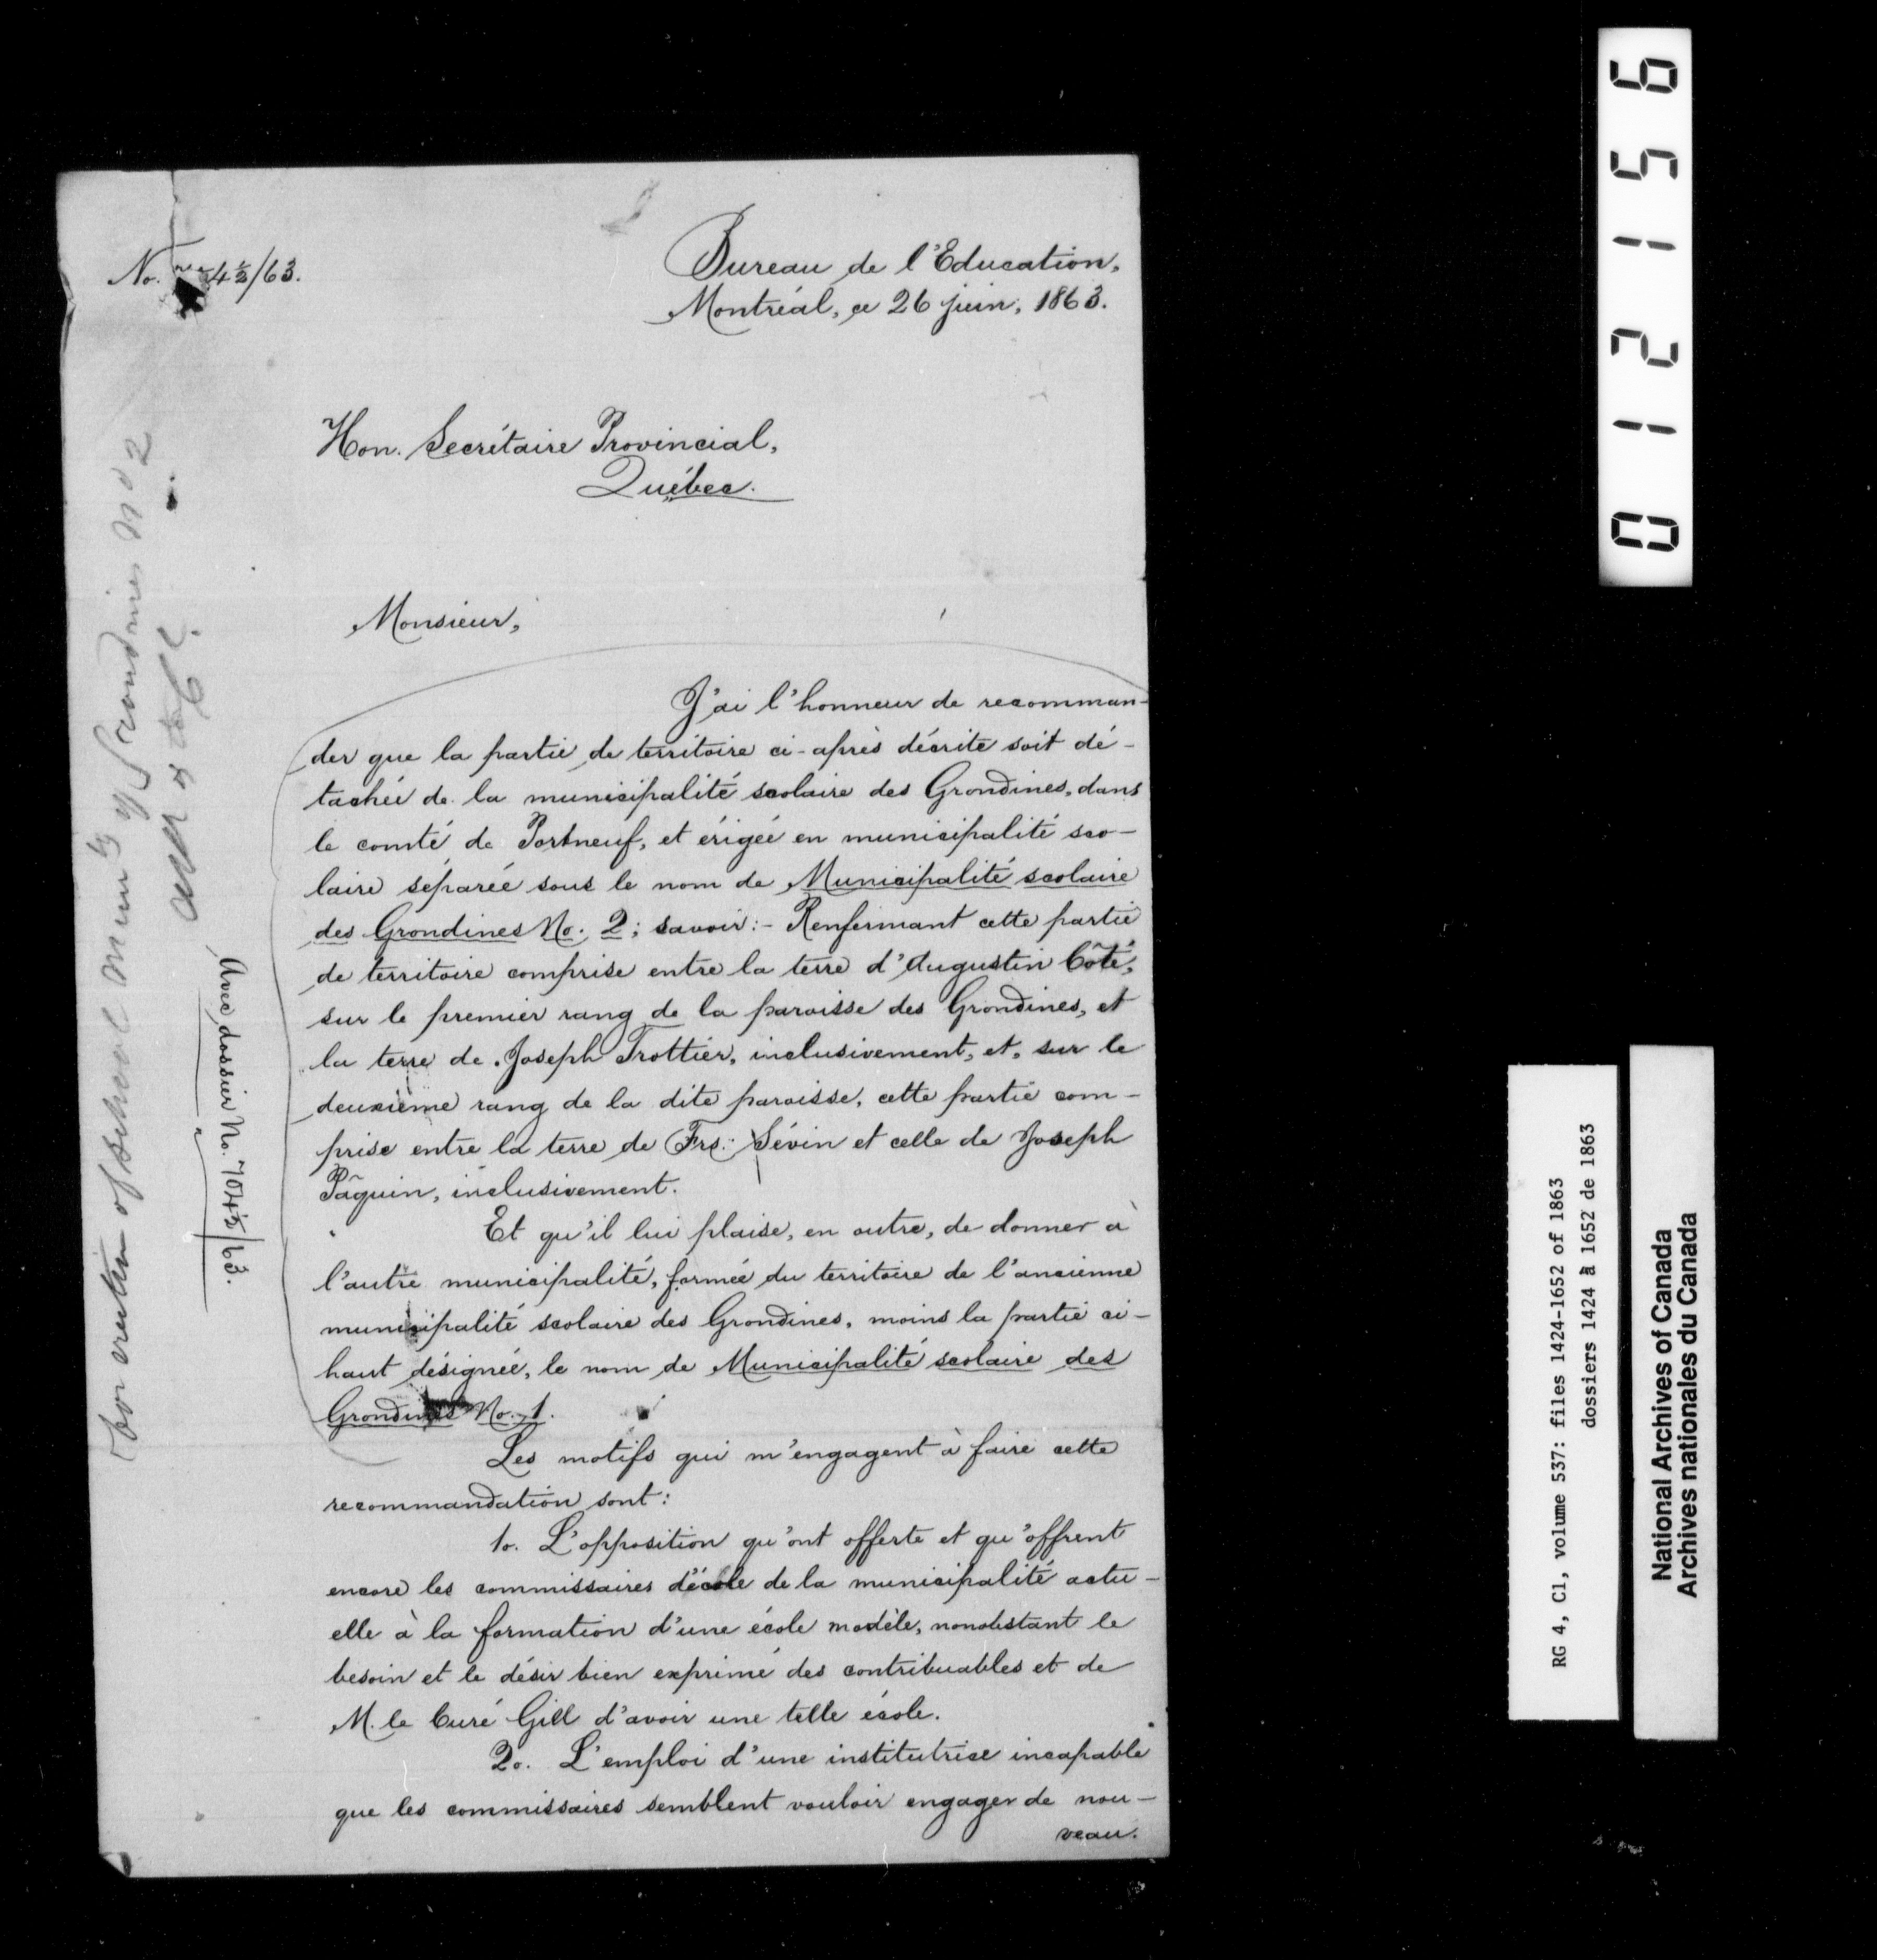 No. 704½/63.
Bureau de l'Education,
Montréal, ce 26 juin, 1863.
Hon. Secrétaire Provincial,
Québec.
Monsieur,
J'ai l'honneur de recomman-
der que la partie de territoire ci-après décrite soit dé-
tachée de la municipalité scolaire des Grondines, dans
le comté de Portneuf, et érigée en municipalité sco-
laire séparée sous le nom de Municipalité scolaire
des Grondines No. 2; savoir:- Renfermant cette partie
de territoire comprise entre la terre d'Augustin Côté,
sur le premier rang de la paroisse des Grondines, et
la terre de Joseph Trottier, inclusivement, et, sur le
deuxième rang de la dite paroisse, cette partie com-
prise entre la terre de Frs. Sévin et celle de Joseph
Pâquin, inclusivement.
Et qu'il lui plaise, en outre, de donner à
l'autre municipalité, formée du territoire de l'ancienne
municipalité scolaire des Grondines, moins la partie ci-
haut désignée, le nom de Municipalité scolaire des
Grondines No. 1.
Les motifs qui m'engagent à faire cette
recommandation sont:
1o. L'opposition qu'ont offerte et qu'offrent
encore les commissaires d'école de la municipalité actu-
elle à la formation d'une école modèle, nonobstant le
besoin et le désir bien exprimé des contribuables et de
M. le Curé Gill d'avoir une telle école.
2o. L'emploi d'une institutrice incapable
que les commissaires semblent vouloir engager de nou-
veau.
Avec dossier No. 704½/63.
For erection of school Munty of Grondines No 2
012156
RG 4, C1, volume 537: files 1424-1652 of 1863
dossiers 1424 à 1652 de 1863
National Archives of Canada
Archives nationales du Canada